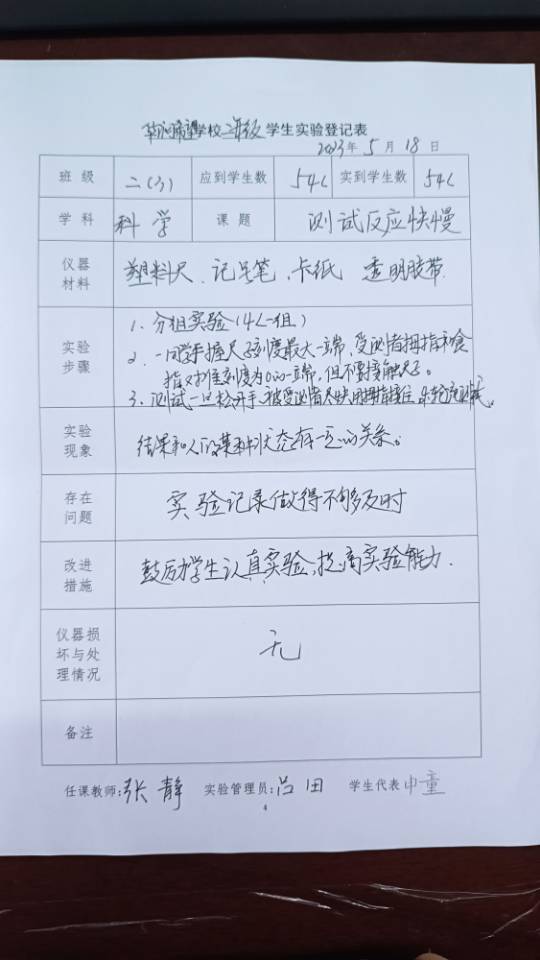 希望学校二年级学生实验登记表
2023年5月18日
班级 二(3) 应到学生数 54人 实到学生数 54人
学科 科学 课题 测试反应快慢
仪器材料 塑料尺、记号笔、卡纸 透明胶带
实验步骤
1、分组实验(4人一组)
2、一同学手握尺子刻度最大一端,受测者拇指和食
指对准刻度为0的一端,但不要接触尺子。
3、测试一旦松开手,被受测者尽快用拇指接住
实验现象 结果和人的某种状态有一定的关系。
存在问题 实验记录做得不够及时
改进措施 鼓励学生认真实验,提高实验能力.
仪器损坏与处理情况 无
备注
任课教师:张静 实验管理员:吕田 学生代表 童
4